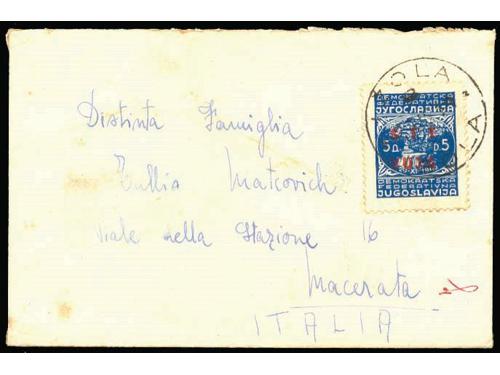 IZOLA
ДЕМОКРАТСКА
ФЕДЕРАТИВНА
ЈУГОСЛАВИЈА
5 Д. D. 5
DEMOKRATSKA
FEDERATIVNA
JUGOSLAVIJA
Distinta Famiglia
Tullia Matcovich
Viale della Stazione 16
Macerata
ITALIA